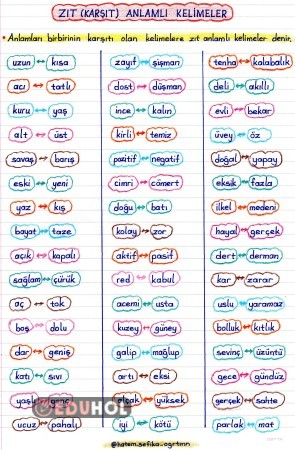 ZIT (KARŞIT) ANLAMLI KELİMELER
• Anlamları birbirinin karşıtı olan kelimelere zıt anlamlı kelimeler denir.
uzun ↔ kısa zayıf ↔ şişman tenha ↔ kalabalık
acı ↔ tatlı dost ↔ düşman deli ↔ akıllı
kuru ↔ yaş ince ↔ kalın evli ↔ bekar
alt ↔ üst kirli ↔ temiz üvey ↔ öz
savaş ↔ barış pozitif ↔ negatif doğal ↔ yapay
eski ↔ yeni cimri ↔ cömert eksik ↔ fazla
yaz ↔ kış doğu ↔ batı ilkel ↔ medeni
bayat ↔ taze kolay ↔ zor hayal ↔ gerçek
açık ↔ kapalı aktif ↔ pasif dert ↔ derman
sağlam ↔ çürük red ↔ kabul kar ↔ zarar
aç ↔ tok acemi ↔ usta uslu ↔ yaramaz
boş ↔ dolu kuzey ↔ güney bolluk ↔ kıtlık
dar ↔ geniş galip ↔ mağlup sevinç ↔ üzüntü
katı ↔ sıvı artı ↔ eksi gece ↔ gündüz
yaşlı ↔ genç alçak ↔ yüksek gerçek ↔ sahte
ucuz ↔ pahalı iyi ↔ kötü parlak ↔ mat
EDUHOL
@hatem.sefika_ogrtmn